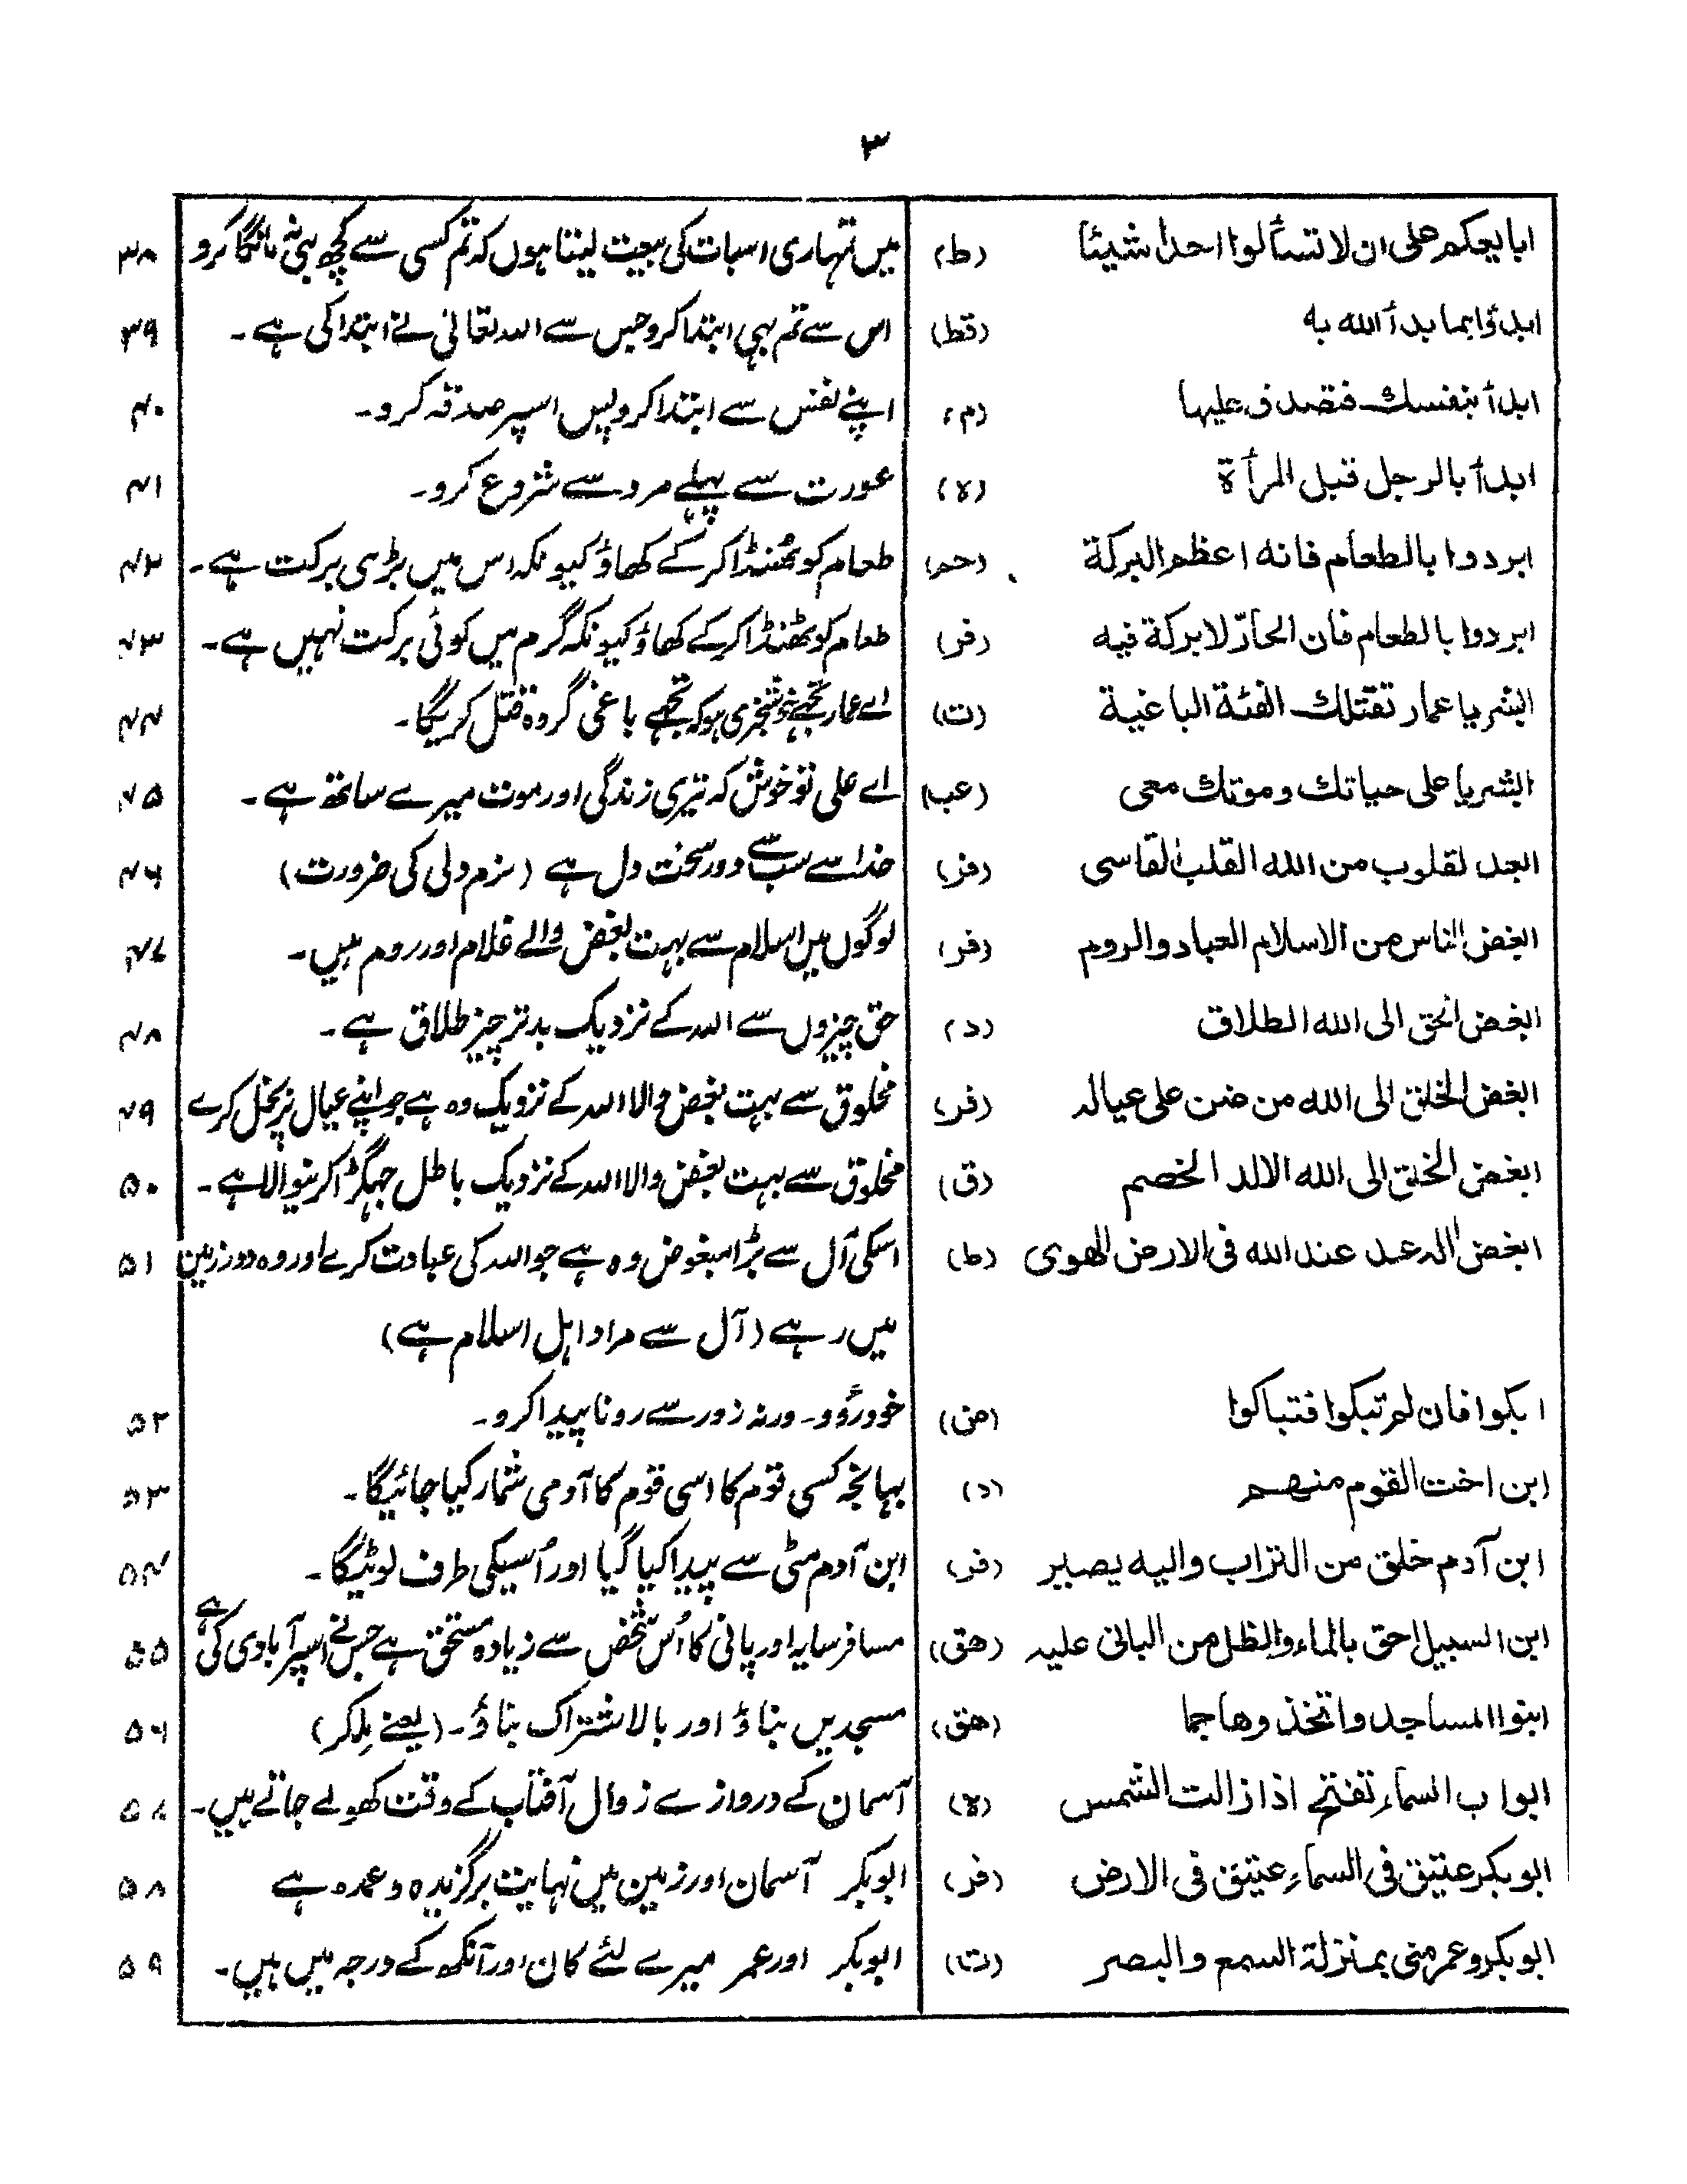 ۳
ابايعكم على ان لا تسألوا احدا شيئا (ط) میں تمہاری اسبات کی بیعت لیتا ہوں کہ تم کسی سے کچھ بھی نہ مانگا کرو ۳۸
ابدؤا بما بدأ الله به (قط) اس سے تم بہی ابتدا کرو جس سے اللہ تعالیٰ نے ابتدا کی ہے۔ ۳۹
ابدأ بنفسك فتصدق عليها (م) اپنے نفس سے ابتدا کرو پس اسپر صدقہ کرو۔ ۴۰
ابدأ بالرجل قبل المرأة (ه) عورت سے پہلے مرد سے شروع کرو۔ ۴۱
ابردوا بالطعام فانه اعظم البركة (حم) طعام کو ٹھنڈا کر کے کھاؤ کیونکہ اس میں بڑی برکت ہے۔ ۴۲
ابردوا بالطعام فان الحارّ لا بركة فيه (فر) طعام کو ٹھنڈا کر کے کھاؤ کیونکہ گرم میں کوئی برکت نہیں ہے۔ ۴۳
ابشر يا عمار تقتلك الفئة الباغية (ت) اے عمار تجھے خوشخبری ہو کہ تجھے باغی گروہ قتل کریگا۔ ۴۴
ابشر يا على حياتك وموتك معى (عب) اے علی تو خوش کہ تیری زندگی اور موت میرے ساتھ ہے۔ ۴۵
ابعد القلوب من الله القلب القاسى (فر) خدا سے سب سے دور سخت دل ہے (نرم دلی کی ضرورت) ۴۶
ابغض الناس من الاسلام العباد والروم (فر) لوگوں میں اسلام سے بہت بغض والے غلام اور روم ہیں۔ ۴۷
ابغض الحق الى الله الطلاق (د) حق چیزوں سے اللہ کے نزدیک بدتر چیز طلاق ہے۔ ۴۸
ابغض الخلق الى الله من ضن على عياله (فر) مخلوق سے بہت بغض والا اللہ کے نزدیک وہ ہے جو اپنے عیال پر بخل کرے ۴۹
ابغض الخلق الى الله الالد الخصم (ق) مخلوق سے بہت بغض والا اللہ کے نزدیک باطل جہگڑا کرنیوالا ہے۔ ۵۰
ابغض اله عبد عند الله فى الارض الهوى (ط) اسکی آل سے بڑا مبغوض وہ ہے جو اللہ کی عبادت کرے اور وہ دور زمین ۵۱
میں رہے (آل سے مراد اہل اسلام ہے)
ابكوا فان لم تبكوا فتباكوا (ض) خود رؤو۔ ورنہ زور سے رونا پیدا کرو۔ ۵۲
ابن اخت القوم منهم (د) بہانجہ کسی قوم کا اسی قوم کا آدمی شمار کیا جائیگا۔ ۵۳
ابن آدم خلق من التراب واليه يصير (فر) ابن آدم مٹی سے پیدا کیا گیا اور اُسیکی طرف لوٹیگا۔ ۵۴
ابن السبيل احق بالماء والظل من البانى عليه (هق) مسافر سایہ اور پانی کا اُس شخص سے زیادہ مستحق ہے جس نے اسپر آبادی کی ہے ۵۵
ابنوا المساجد واتخذوها جما (هق) مسجدیں بناؤ اور بالاشتراک بناؤ۔ (یعنے ملکر) ۵۶
ابواب السماء تفتح اذا زالت الشمس (ه) آسمان کے دروازے زوال آفتاب کے وقت کھولے جاتے ہیں۔ ۵۷
ابوبكر عتيق فى السماء عتيق فى الارض (فر) ابوبکر آسمان اور زمین میں نہایت برگزیدہ و عمدہ ہے ۵۸
ابوبكر وعمر منى بمنزلة السمع والبصر (ت) ابوبکر اور عمر میرے لئے کان اور آنکھ کے درجہ میں ہیں۔ ۵۹